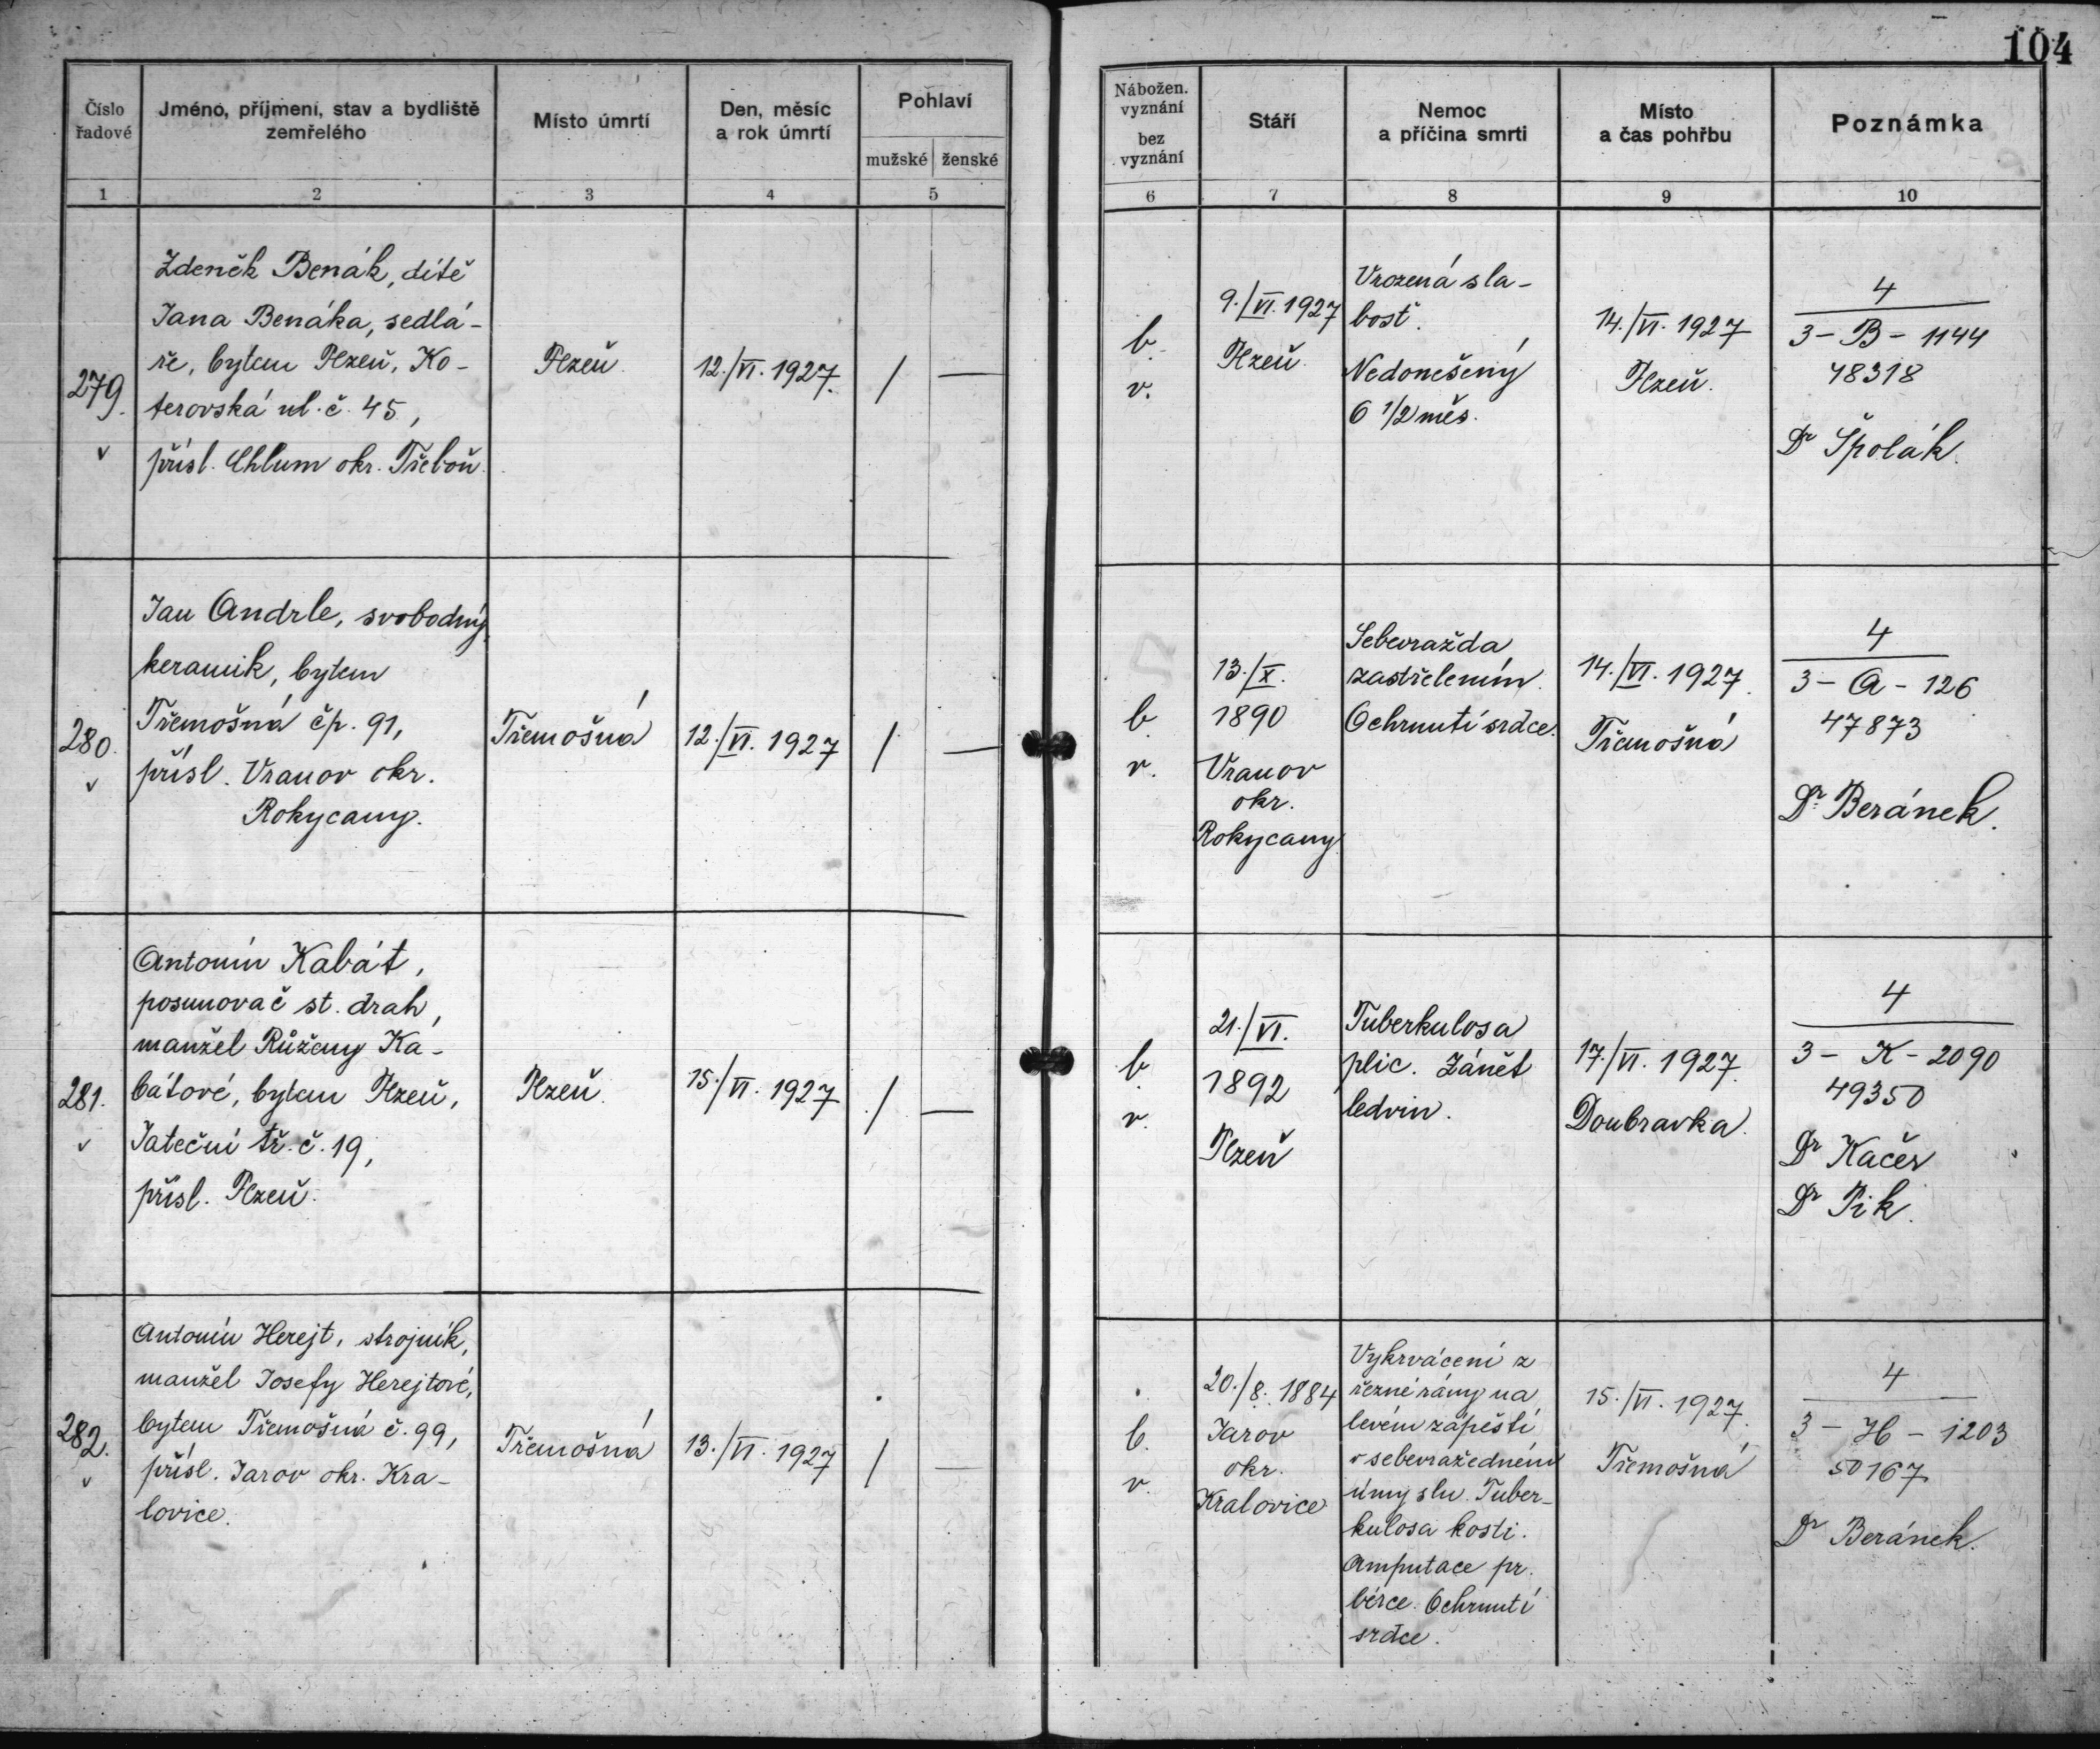 104
Číslo řadové
Jméno, příjmení, stav a bydliště zemřelého
Místo úmrtí
Den, měsíc a rok úmrtí
Pohlaví
mužské ženské
1 2 3 4 5
279.
v
Zdeněk Benák, dítě
Jana Benáka, sedlá-
ře, bytem Plzeň, Ko-
terovská ul. č. 45,
přísl. Chlum okr. Třeboň.
Plzeň.
12./VI. 1927.
/ —
280.
v
Jan Andrle, svobodný
keramik, bytem
Třemošná čp. 91,
přísl. Vranov okr.
Rokycany.
Třemošná
12./VI. 1927
/ —
281.
v
Antonín Kabát,
posunovač st. drah,
manžel Růženy Ka-
bátové, bytem Plzeň,
Jateční tř. č. 19,
přísl. Plzeň.
Plzeň.
15./VI. 1927
/ —
282.
v
Antonín Herejt, strojník,
manžel Josefy Herejtové,
bytem Třemošná č. 99,
přísl. Jarov okr. Kra-
lovice.
Třemošná
13./VI. 1927
/ —
Nábožen.
vyznání
bez
vyznání
Stáří
Nemoc
a příčina smrti
Místo
a čas pohřbu
Poznámka
6 7 8 9 10
b.
v.
9./VI. 1927
Plzeň.
Vrozená sla-
bost.
Nedonešený
6 1/2 měs.
14./VI. 1927
Plzeň.
4
3 - B - 1144
48318
Dr Špolák.
b.
v.
13./X.
1890
Vranov
okr.
Rokycany
Sebevražda
zastřelením.
Ochrnutí srdce.
14./VI. 1927.
Třemošná
4
3 - A - 126
47873
Dr. Beránek.
b.
v.
21./VI.
1892
Plzeň
Tuberkulosa
plic. Zánět
ledvin.
17./VI. 1927.
Doubravka.
4
3 - K - 2090
49350
Dr Kačer
Dr Pik.
b.
v.
20./8. 1884
Jarov
okr.
Kralovice
Vykrvácení z
řezné rány na
levém zápěstí
v sebevražedném
úmyslu. Tuber-
kulosa kosti.
Amputace pr.
bérce. Ochrnutí
srdce.
15./VI. 1927.
Třemošná
4
3 - H - 1203
50167
Dr Beránek.